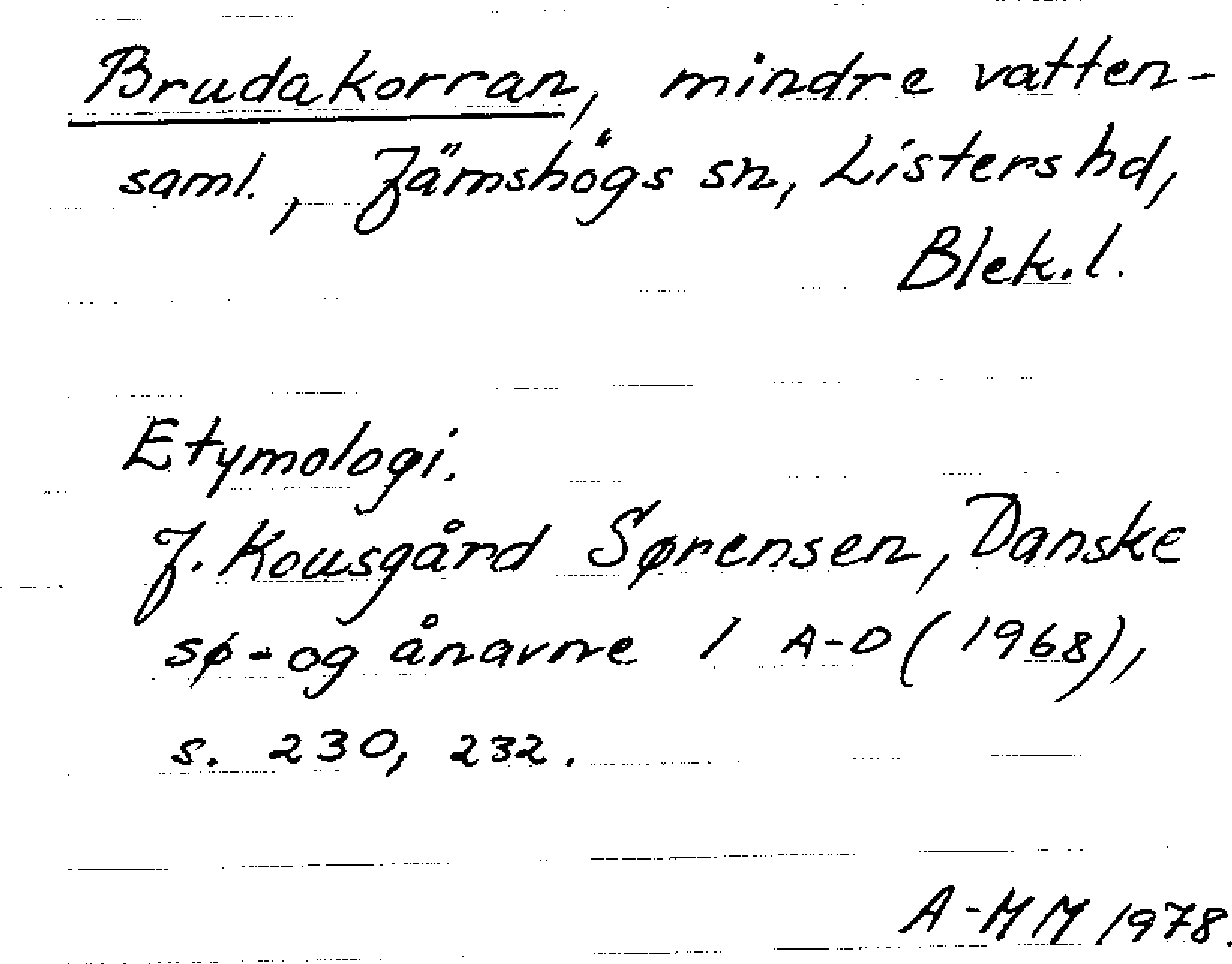 Brudakorran, mindre vatten-
saml., Jämshögs sn, Listers hd,
Blek.l.
Etymologi.
J. Kousgård Sørensen, Danske
sø- og ånavne 1 A-D (1968),
s. 230, 232.
A-MM 1978.